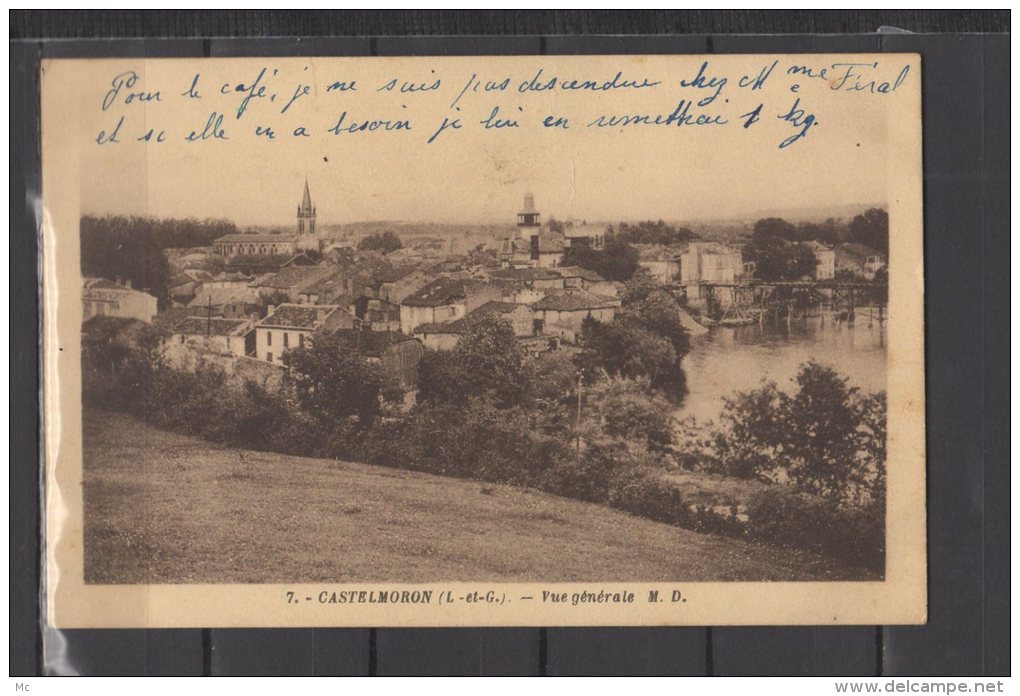 Pour le café, je ne suis pas descendue chez Mme Féral
et si elle en a besoin je lui en remettrai 1 kg.
7. - CASTELMORON (L.-et-G.). - Vue générale M. D.
Mc
www.delcampe.net